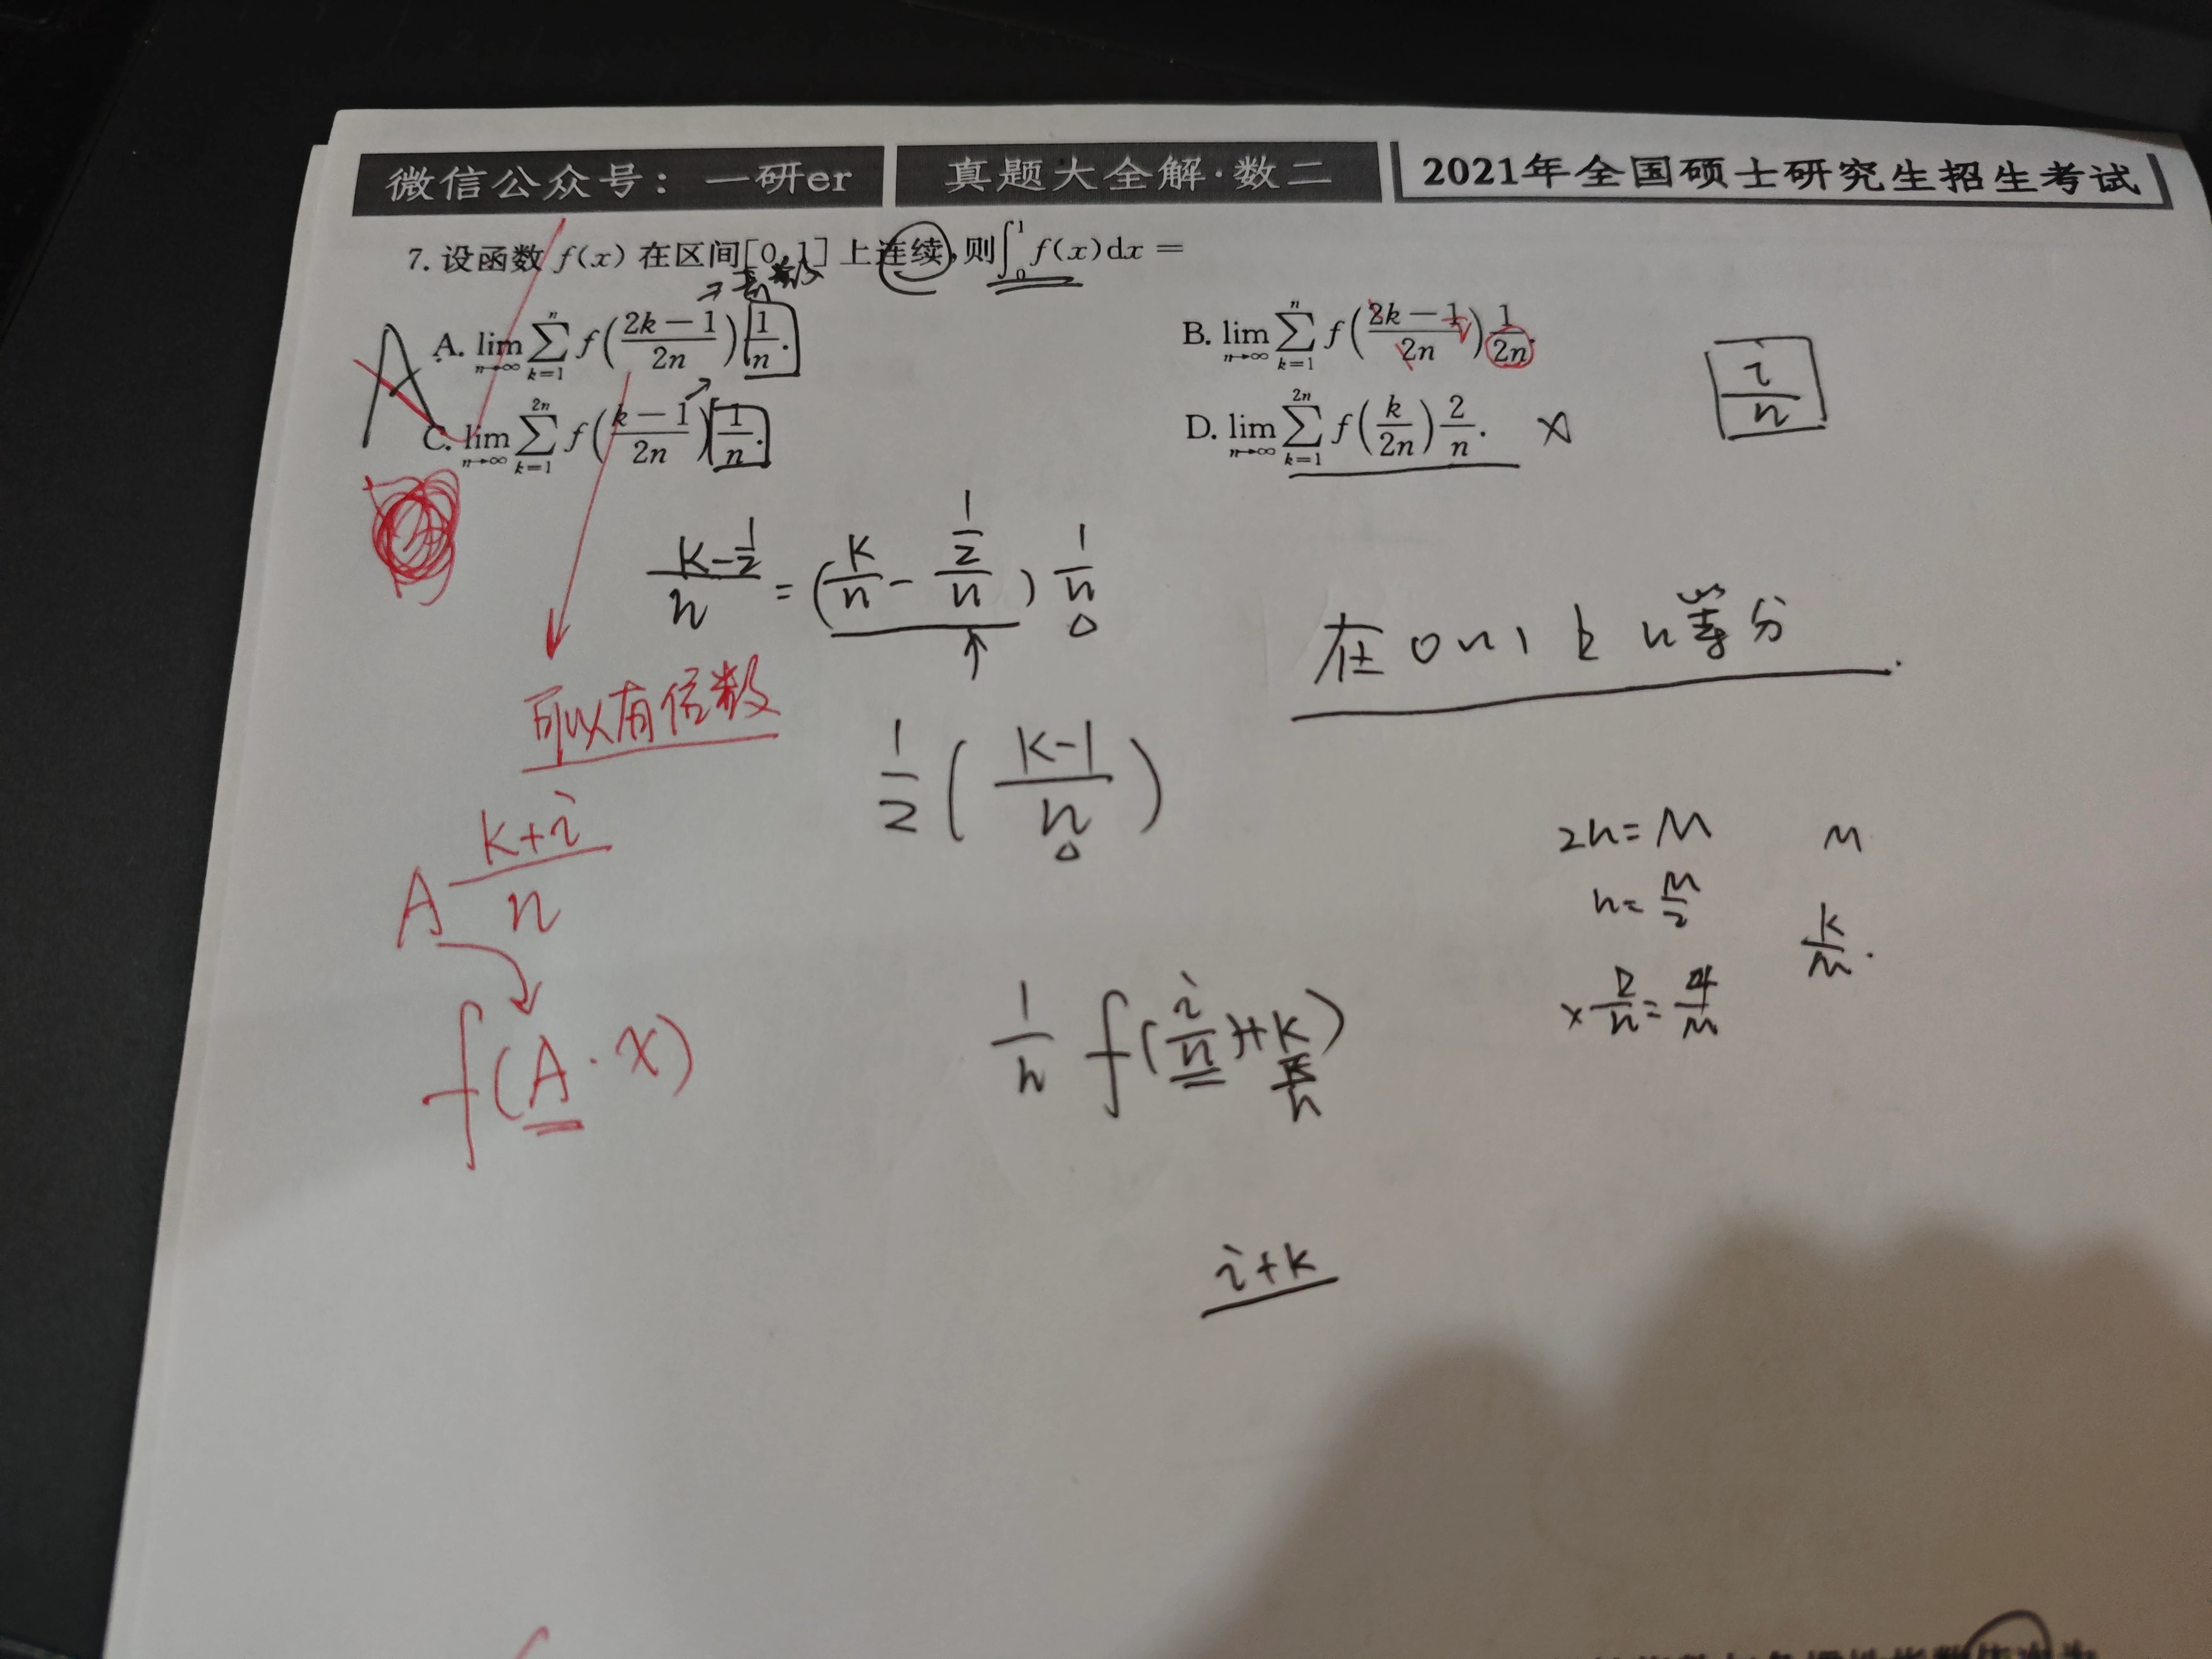 微信公众号：一研er 真题大全解·数二 2021年全国硕士研究生招生考试
7. 设函数 f(x) 在区间[0,1] 上连续,则∫₀¹ f(x)dx =
A. lim_{n→∞} ∑_{k=1}^{n} f((2k−1)/(2n)) 1/n. B. lim_{n→∞} ∑_{k=1}^{n} f((2k−1)/(2n)) 1/(2n).
A
i/n
C. lim_{n→∞} ∑_{k=1}^{2n} f((k−1)/(2n)) 1/n. D. lim_{n→∞} ∑_{k=1}^{2n} f(k/(2n)) 2/n. ×
(k−1/2)/n = (k/n − (1/2)/n) 1/n
n等分
可以有倍数
1/2 ((k−1)/n)
A (k+i)/n
2n=M M
n=M/2
k/M.
f(A·x)
1/n f(i/n)+k
×2/n=4/M
i+k